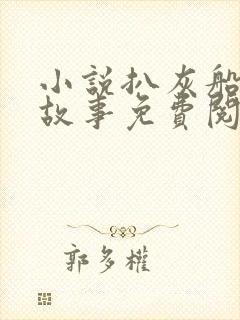 小說扒灰船
故事免費閱
郭多權